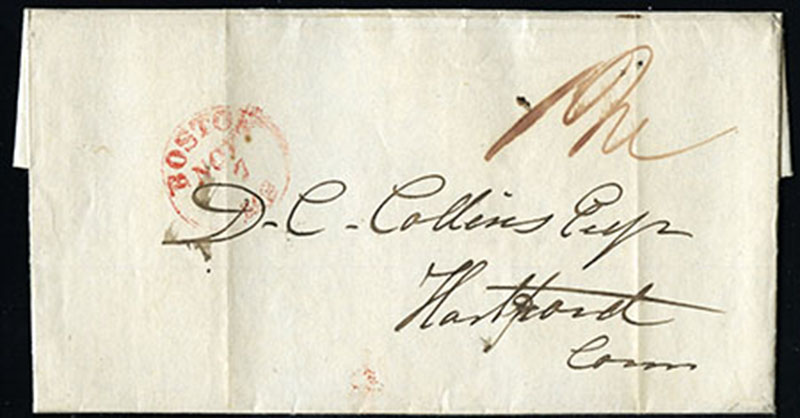 BOSTON
NOV
D. C. Collins Esqr
Hartford
Conn